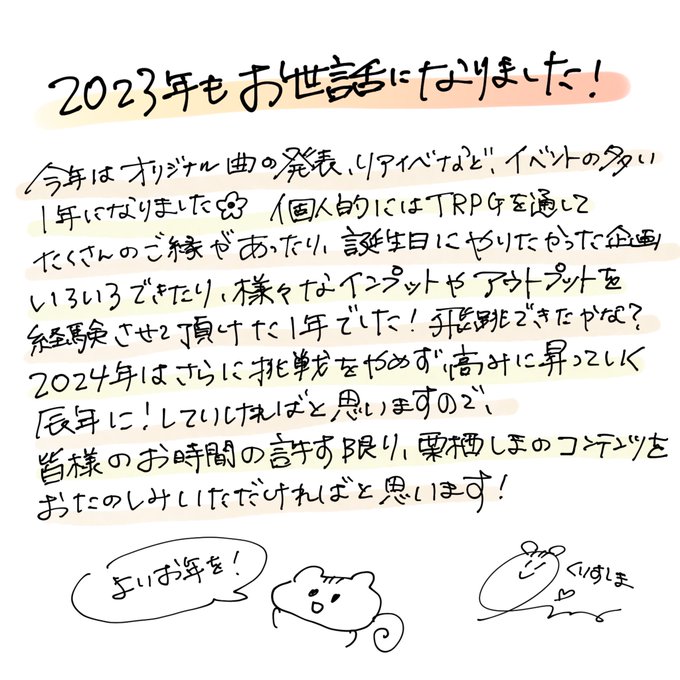 2023年もお世話になりました！
今年はオリジナル曲の発表、リアイベなど、イベントの多い
1年になりました 個人的にはTRPGを通して
たくさんのご縁があったり、誕生日にやりたかった企画
いろいろできたり、様々なインプットやアウトプットを
経験させて頂けた1年でした！飛躍できたかな？
2024年はさらに挑戦をやめず、高みに昇っていく
辰年に！していければと思いますので、
皆様のお時間の許す限り、栗栖しまのコンテンツを
おたのしみいただければと思います！
よいお年を！
くりすしま